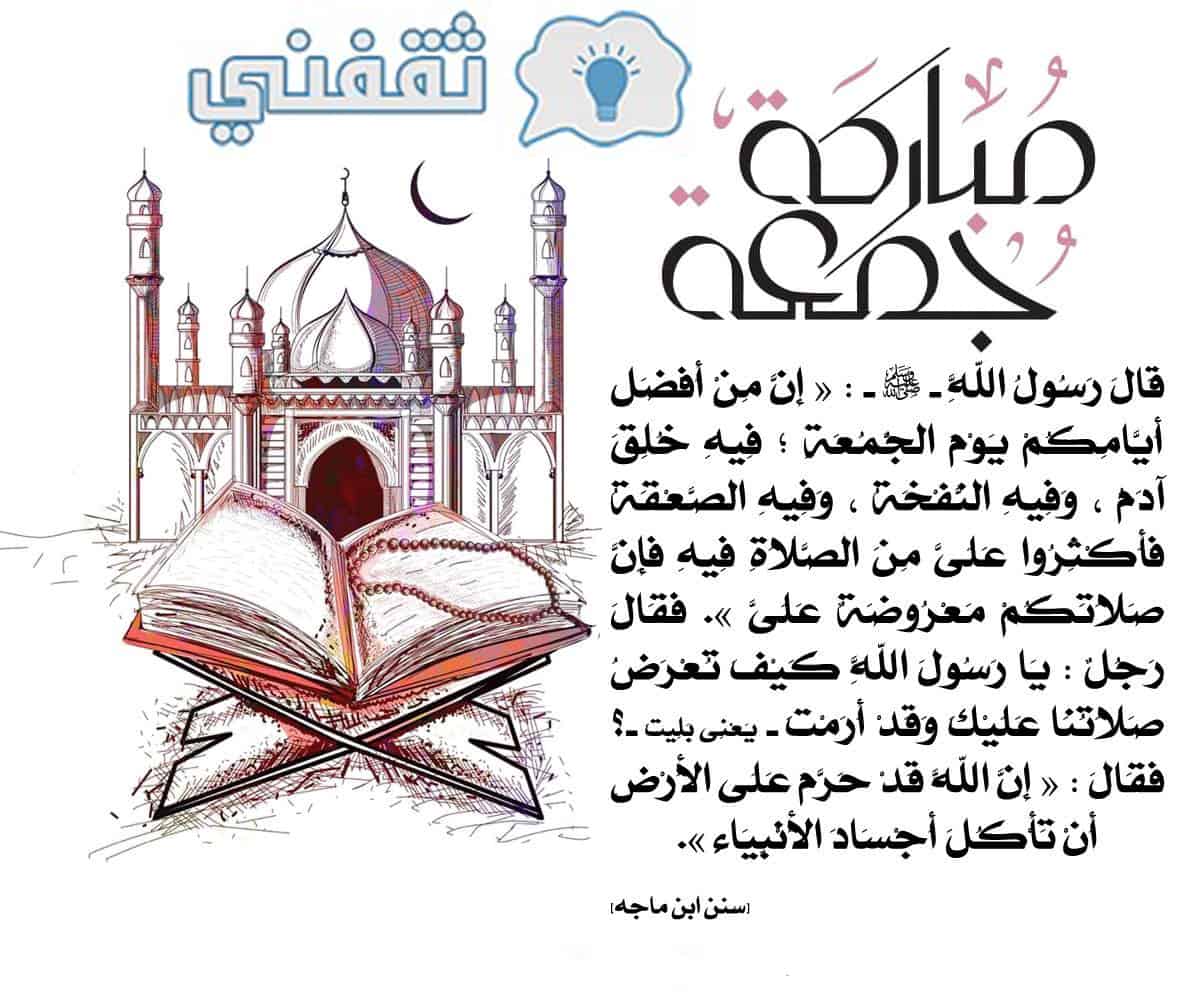 ثقفني
مُبَارَكَة
جُمُعَة
قالَ رَسُولُ اللَّهِ ـ ﷺ ـ : « إنَّ مِنْ أفضَل
أيَّامِكُمْ يَوْم الجُمُعَة ؛ فِيهِ خلِقَ
آدَم ، وَفِيهِ النُفخَة ، وَفِيهِ الصَّعْقة
فأكْثِرُوا علىَّ مِنَ الصَّلاةِ فِيهِ فإنَّ
صَلاتكُمْ مَعْرُوضَة عَلىَّ ». فقالَ
رَجُلْ : يَا رَسُولَ اللَّهِ كيْف تعْرَضُ
صَلاتنا عَليْك وَقدْ أرمْت ـ يَعنى بليت ـ؟
فقالَ : « إنَّ اللَّهَ قدْ حرَّم عَلى الأرْض
أنْ تأكُلَ أجْسَادَ الأنْبيَاءِ ».
[سنن ابن ماجه]